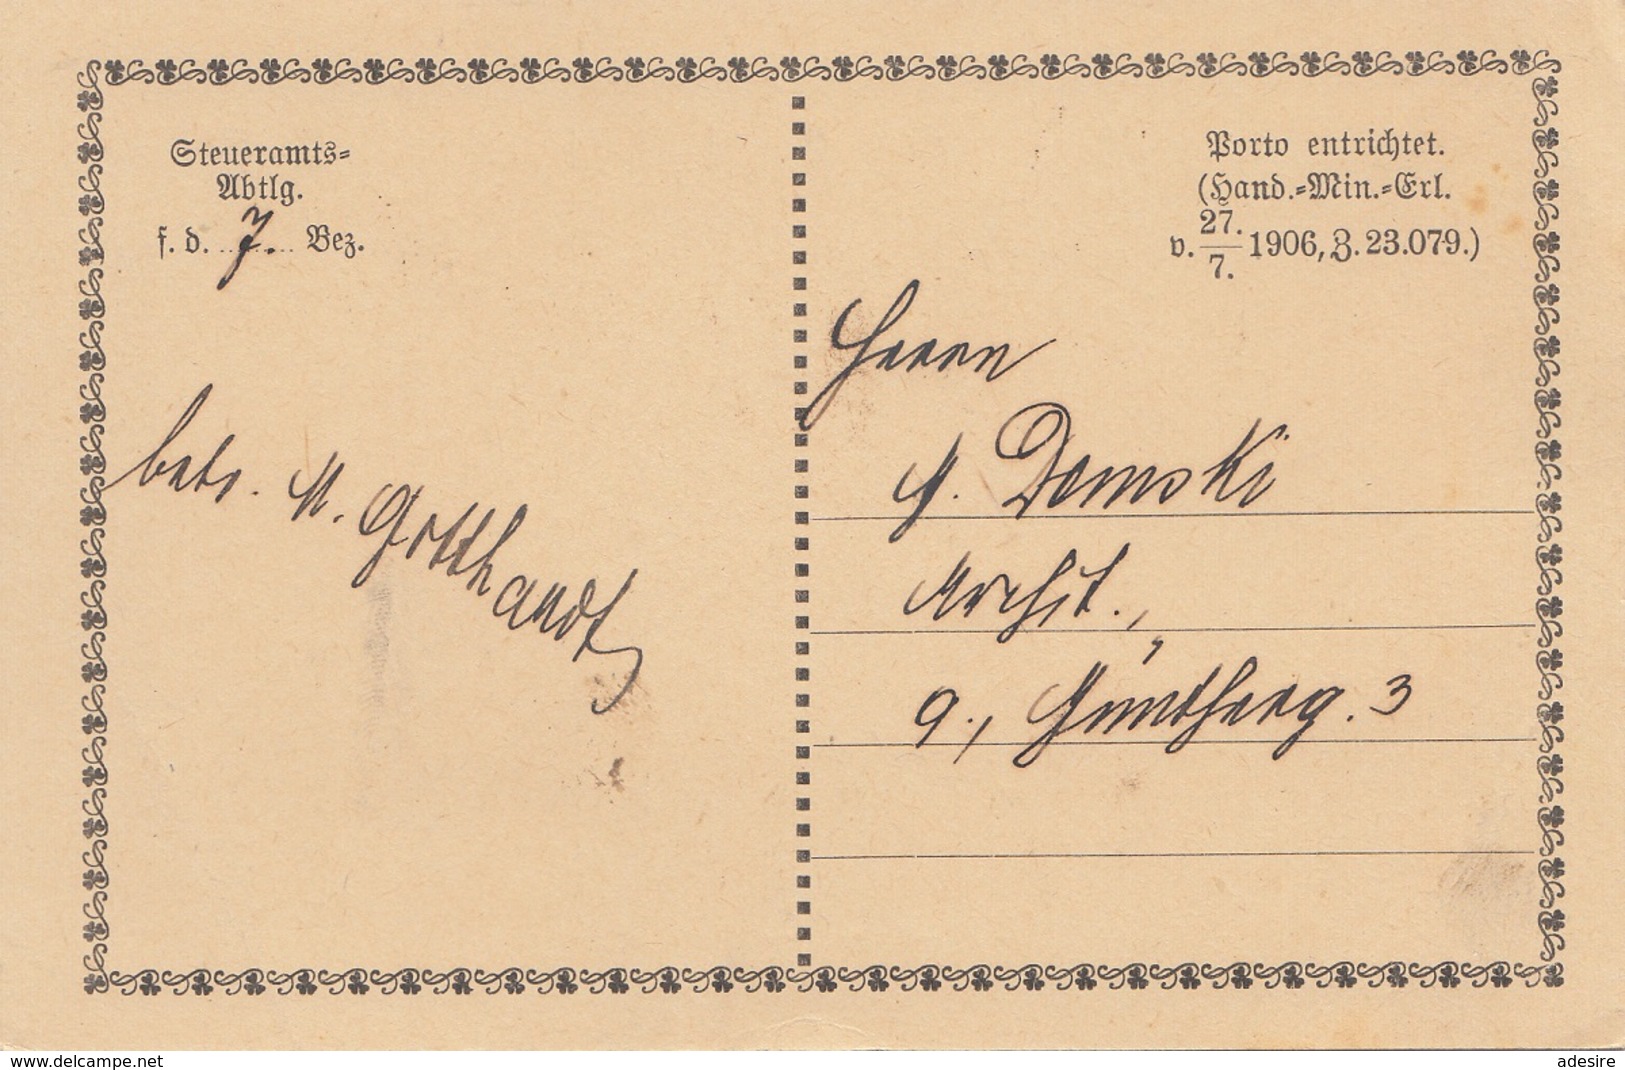 Steueramts=
Abtlg.
f. d. 7. Bez.
Porto entrichtet.
(Hand.=Min.=Erl.
v. 27./7. 1906, Z. 23.079.)
betr. M. Gotthardt
Herrn
A. Domski
Archit.,
9., Güntherg. 3
www.delcampe.net
adesire